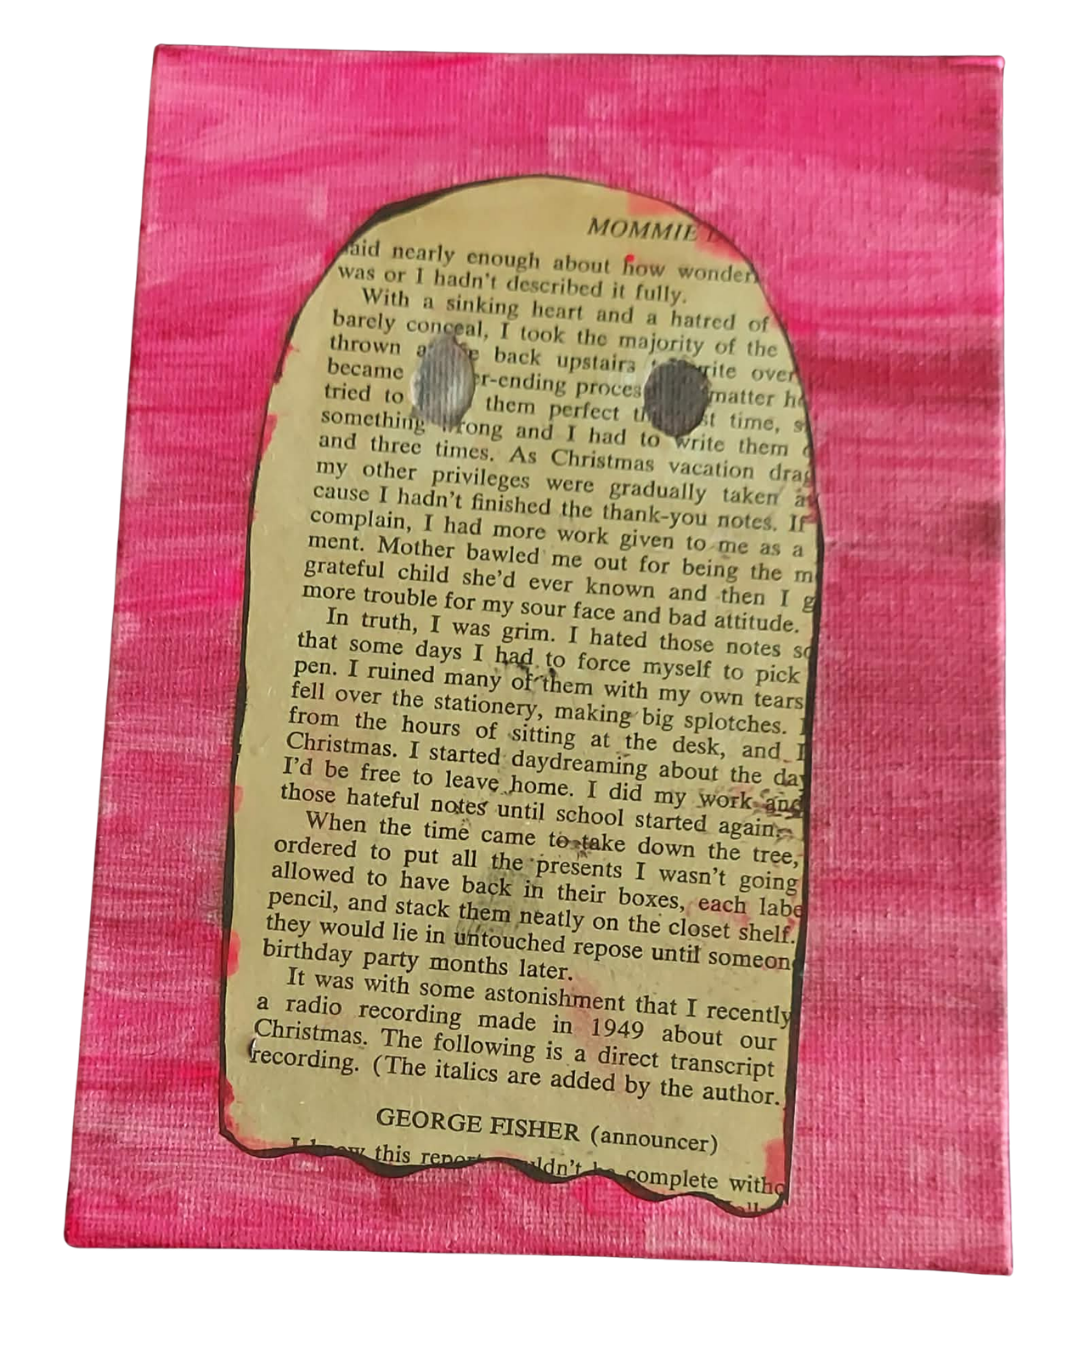 MOMMIE D
aid nearly enough about how wonder
was or I hadn't described it fully.
With a sinking heart and a hatred of
barely conceal, I took the majority of the
thrown back upstairs rite over
became er-ending proces matter h
tried to them perfect th st time, s
something rong and I had to write them
and three times. As Christmas vacation drag
my other privileges were gradually taken a
cause I hadn't finished the thank-you notes. If
complain, I had more work given to me as a
ment. Mother bawled me out for being the m
grateful child she'd ever known and then I g
more trouble for my sour face and bad attitude.
In truth, I was grim. I hated those notes so
that some days I had to force myself to pick
pen. I ruined many of them with my own tears
fell over the stationery, making big splotches. I
from the hours of sitting at the desk, and I
Christmas. I started daydreaming about the day
I'd be free to leave home. I did my work and
those hateful notes until school started again.
When the time came to take down the tree,
ordered to put all the presents I wasn't going
allowed to have back in their boxes, each labe
pencil, and stack them neatly on the closet shelf.
they would lie in untouched repose until someon
birthday party months later.
It was with some astonishment that I recently
a radio recording made in 1949 about our
Christmas. The following is a direct transcript
recording. (The italics are added by the author.
GEORGE FISHER (announcer)
I know this repor uldn't be complete witho